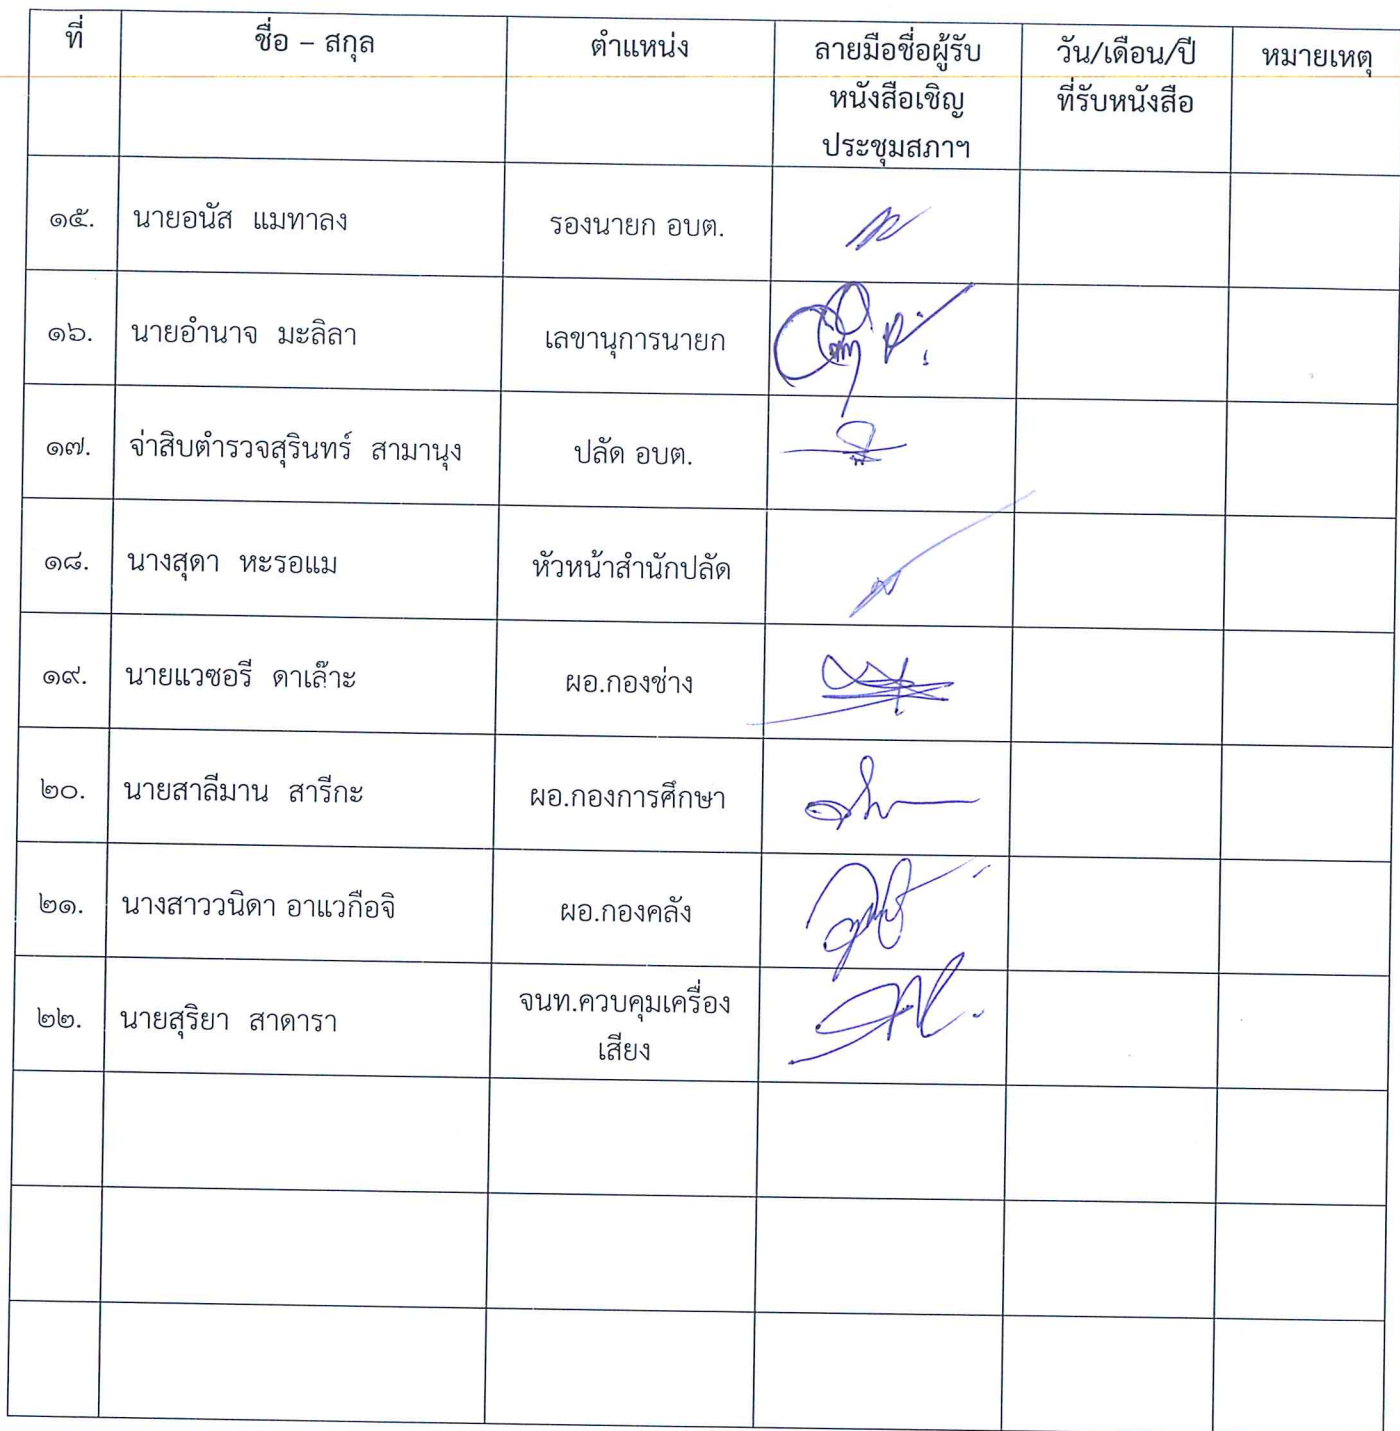 ที่ ชื่อ – สกุล ตำแหน่ง ลายมือชื่อผู้รับ วัน/เดือน/ปี หมายเหตุ
หนังสือเชิญ ที่รับหนังสือ
ประชุมสภาฯ
๑๕. นายอนัส แมทาลง รองนายก อบต.
๑๖. นายอำนาจ มะลิลา เลขานุการนายก
๑๗. จ่าสิบตำรวจสุรินทร์ สามานุง ปลัด อบต.
๑๘. นางสุดา หะรอแม หัวหน้าสำนักปลัด
๑๙. นายแวซอรี ดาเล๊าะ ผอ.กองช่าง
๒๐. นายสาลีมาน สารีกะ ผอ.กองการศึกษา
๒๑. นางสาววนิดา อาแวกือจิ ผอ.กองคลัง
๒๒. นายสุริยา สาดารา จนท.ควบคุมเครื่อง
เสียง